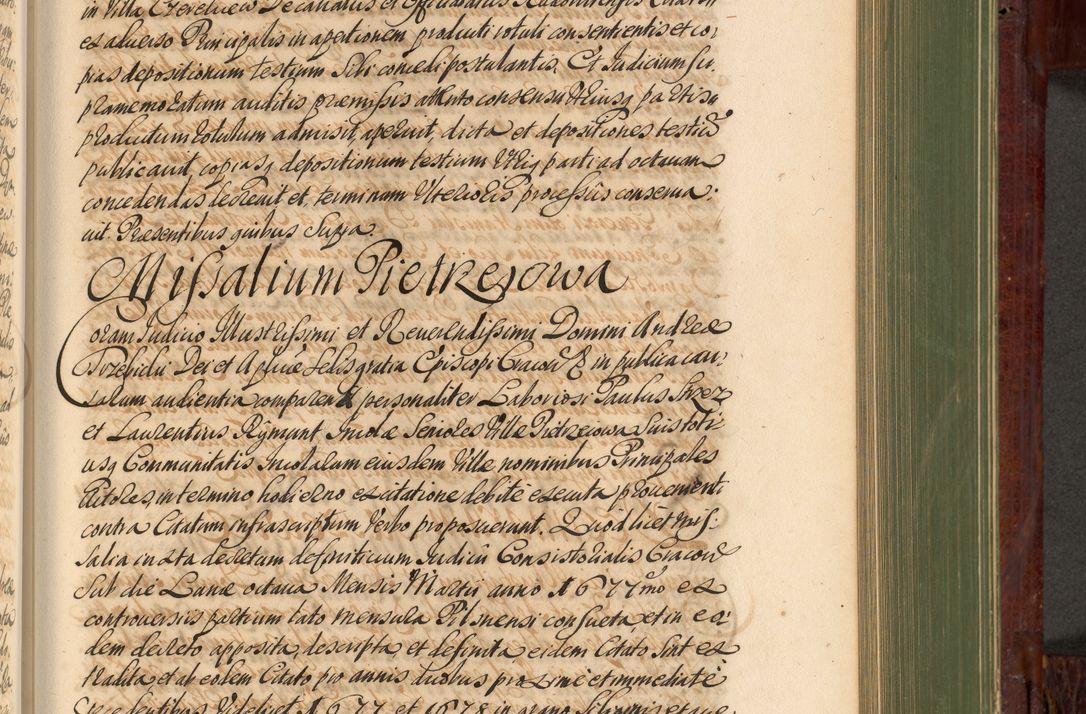 in Villa Czerchiew Decanatus et Officialatus Radomiensis Citator
ex adverso Principalis in apertionem producti rotuli consentientis et co,
pias depositionum testium Sibi concedi postulantis, Et Iudicium su,
pramemoratum auditis præmissis attento consensu Utriusq partis
productum rotulum admisit aperuit, dicta et depositiones testiũ
publicavit, copiasq depositionum testium Utriq parti ad octavam
concedendas decrevit et, terminum Ulterioris processûs conserva:
vit. Præsentibus quibus Supra.
Missalium Pietrzejowa
Coram Iudicio Illustrissimi et Reverendissimi Domini Andreæ
Trzebicki Dei et Aplicæ Sedis gratia Episcopi Cracov & in publica cau,
sarum audientia comparen personaliter Laboriosi Paulus Strez
et Laurentius Rymunt Incolæ Seniores Villæ Pietrzeiowa Suis toti,
usq Communitatis Incolarum eiusdem Villæ nominibus Principales
Actores, in termino hodierno ex citatione debitè executa, provenienti
contra Citatum infrascriptum Verbo proposuerunt. Quòd licet mis:
salia iuxta decretum definitivum Iudicii Consistorialis Cracov
Sub die Lunæ octava Mensis Martii anno 1677mo ex
controversiis partium lato mensura Pilsnensi consueta, et in eo,
dem decreto apposita, descripta et definita, eidem Citato Sint ex
tradita et ab eodem Citato pro annis duobus proximè et immediatè
præcedentibus Videlicet 1677 et 1678 in grano Siliginis et ave